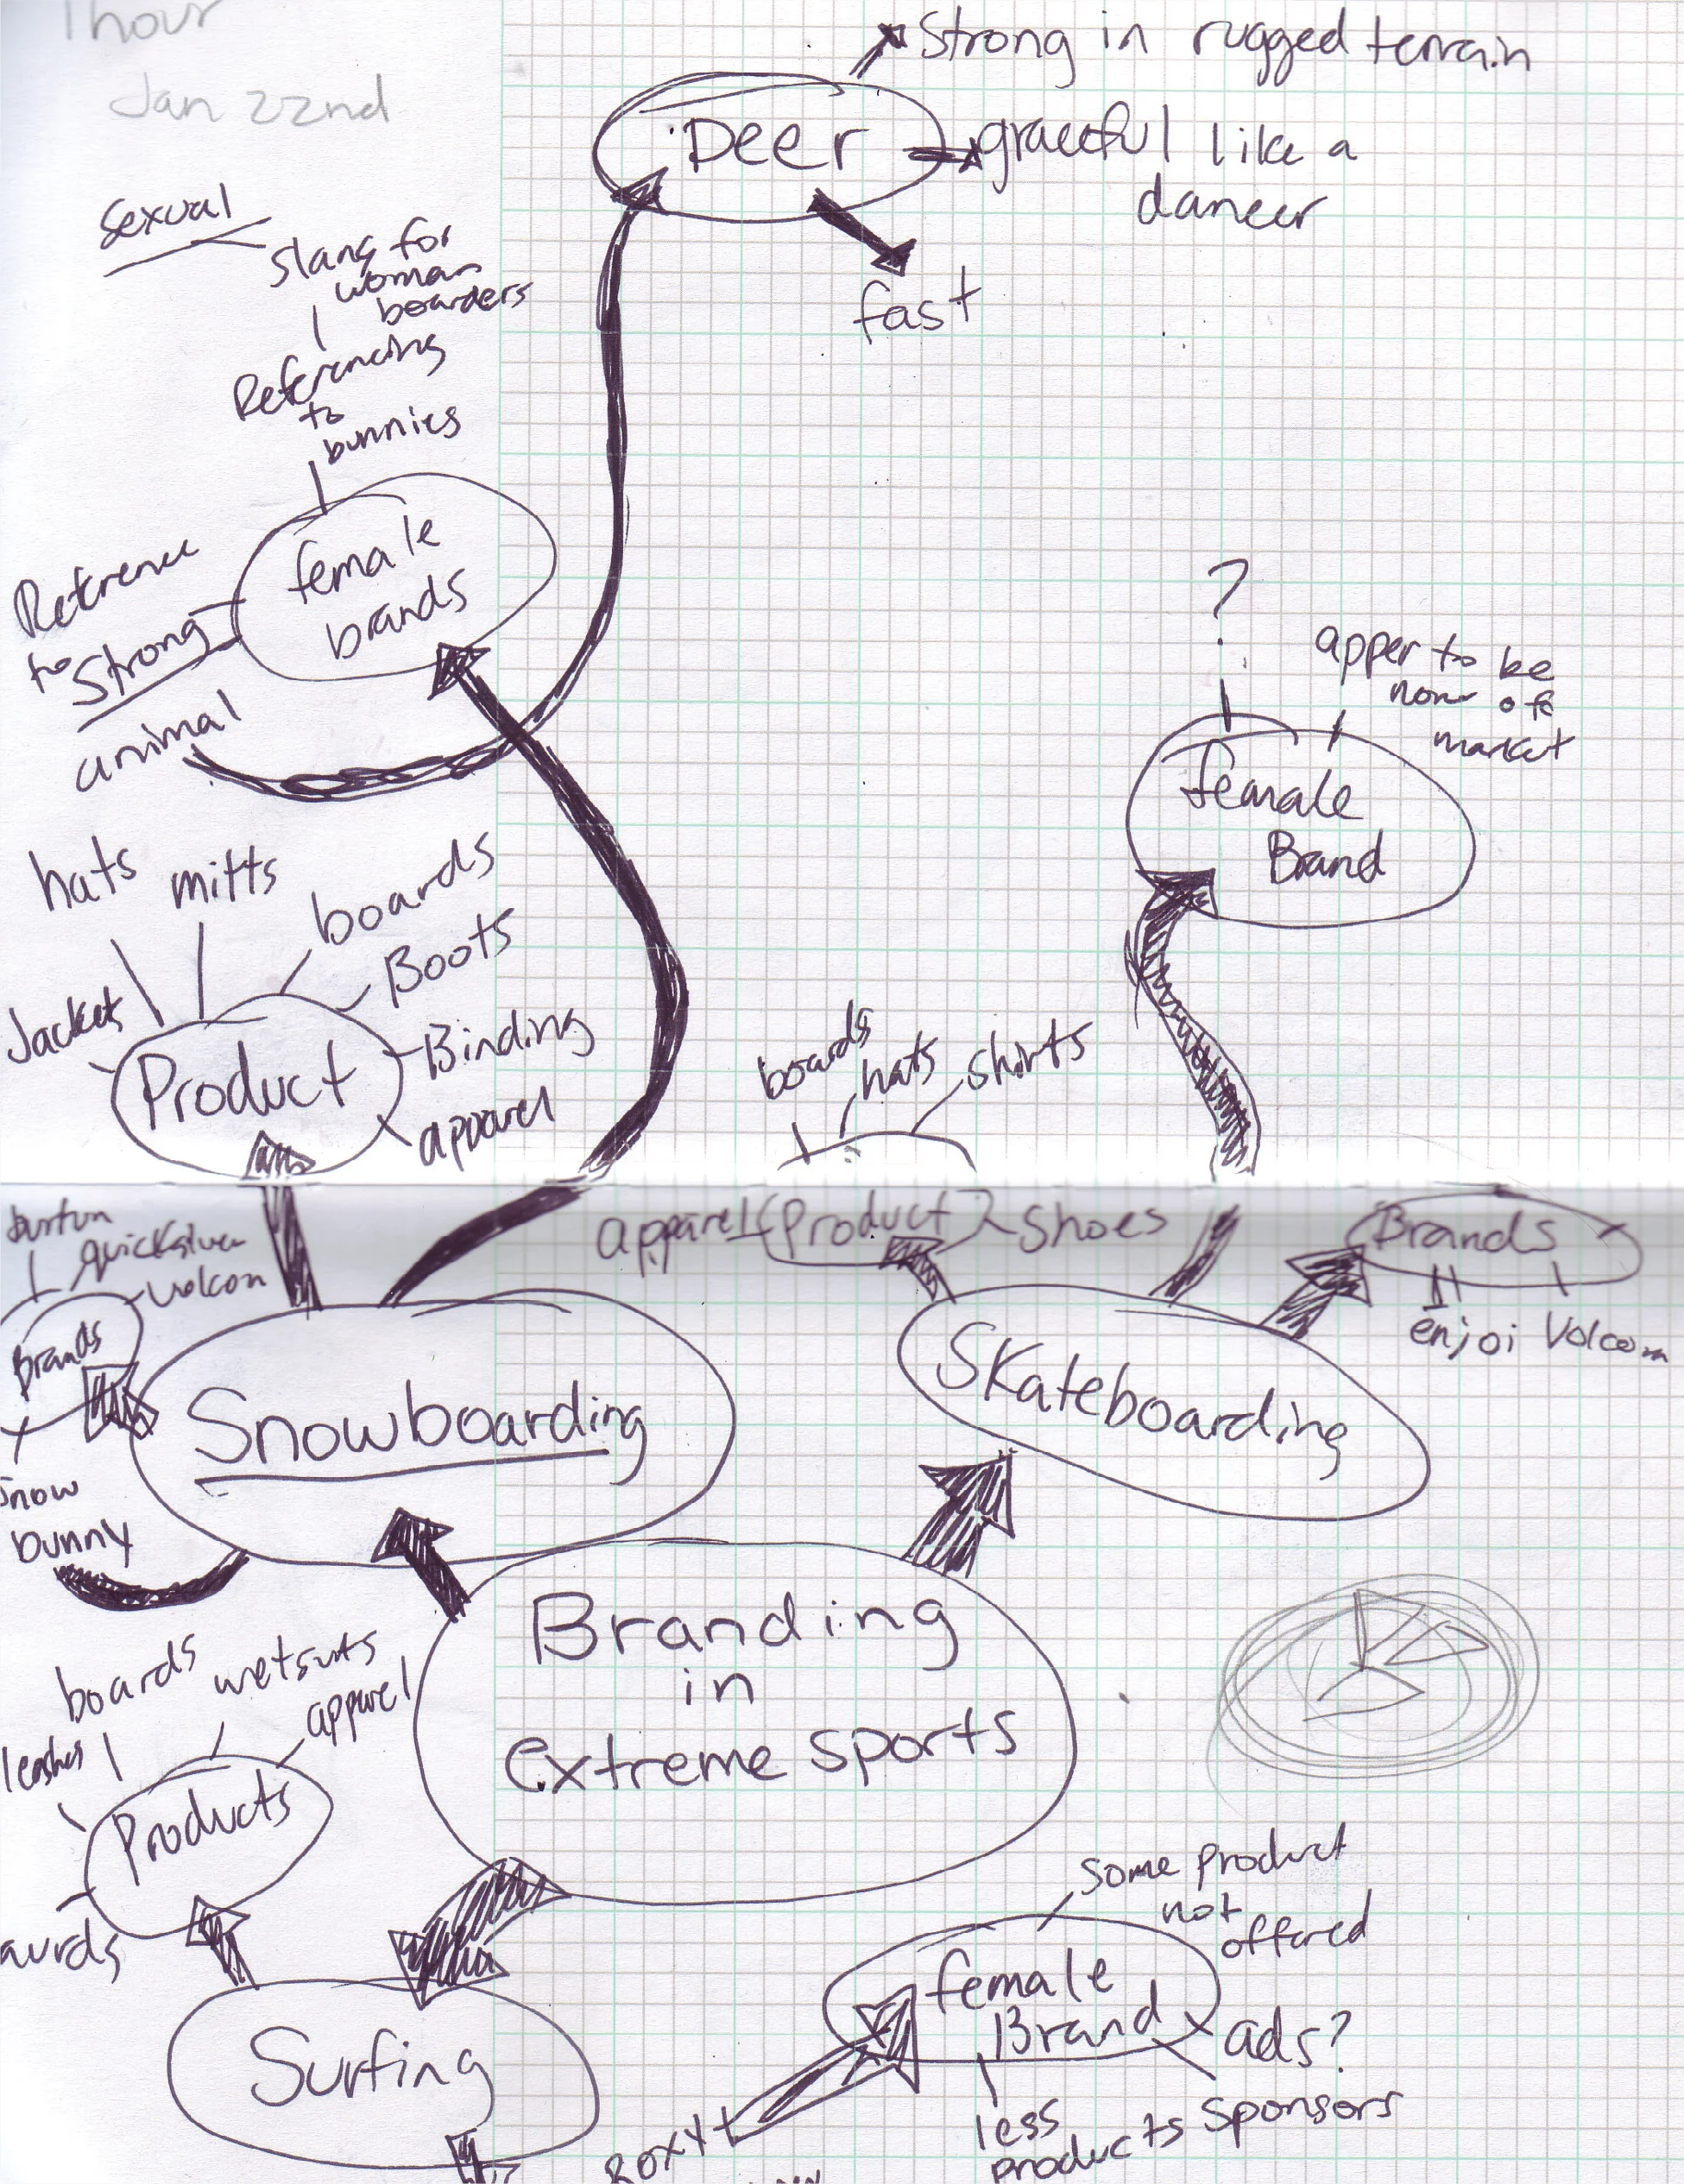 1 hour
Jan 22nd
Strong in rugged terrain
Deer
graceful like a
dancer
fast
sexual
slang for
woman
boarders
Referencing
to
bunnies
female
brands
Reference
to Strong
animal
?
apper to be
non of
market
female
Brand
hats
mitts
boards
Boots
Jackets
Binding
apparel
Product
boards
hats
shirts
apparel
Product
Shoes
Brands
enjoi
Volcom
burton
Quicksilver
Volcom
Brands
Snowboarding
Skateboarding
snow
bunny
Branding
in
extreme sports
boards
wetsuits
apparel
leashes
Products
Surfing
some product
not
offered
female
Brand
ads?
Sponsors
less
products
Roxy